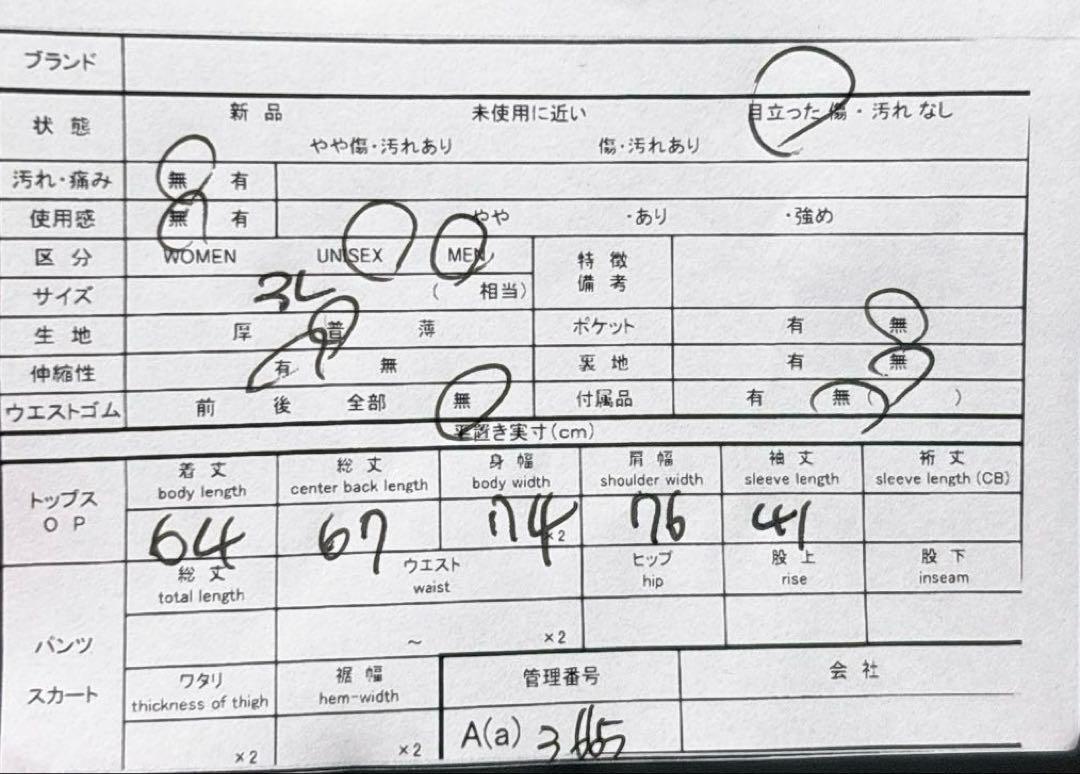 ブランド
状態 新品 未使用に近い 目立った傷・汚れなし
やや傷・汚れあり 傷・汚れあり
汚れ・痛み 無 有
使用感 無 有 やや ・あり ・強め
区分 WOMEN UNISEX MEN 特徴
備考
サイズ 3L ( 相当)
生地 厚 普 薄 ポケット 有 無
伸縮性 有 無 裏地 有 無
ウエストゴム 前 後 全部 無 付属品 有 無 ( )
平置き実寸(cm)
トップス 着丈 総丈 身幅 肩幅 袖丈 裄丈
OP body length center back length body width shoulder width sleeve length sleeve length (CB)
64 67 74 ×2 76 41
総丈 ウエスト ヒップ 股上 股下
total length waist hip rise inseam
パンツ ～ ×2
スカート ワタリ 裾幅 管理番号 会社
thickness of thigh hem-width
×2 ×2 A(a)